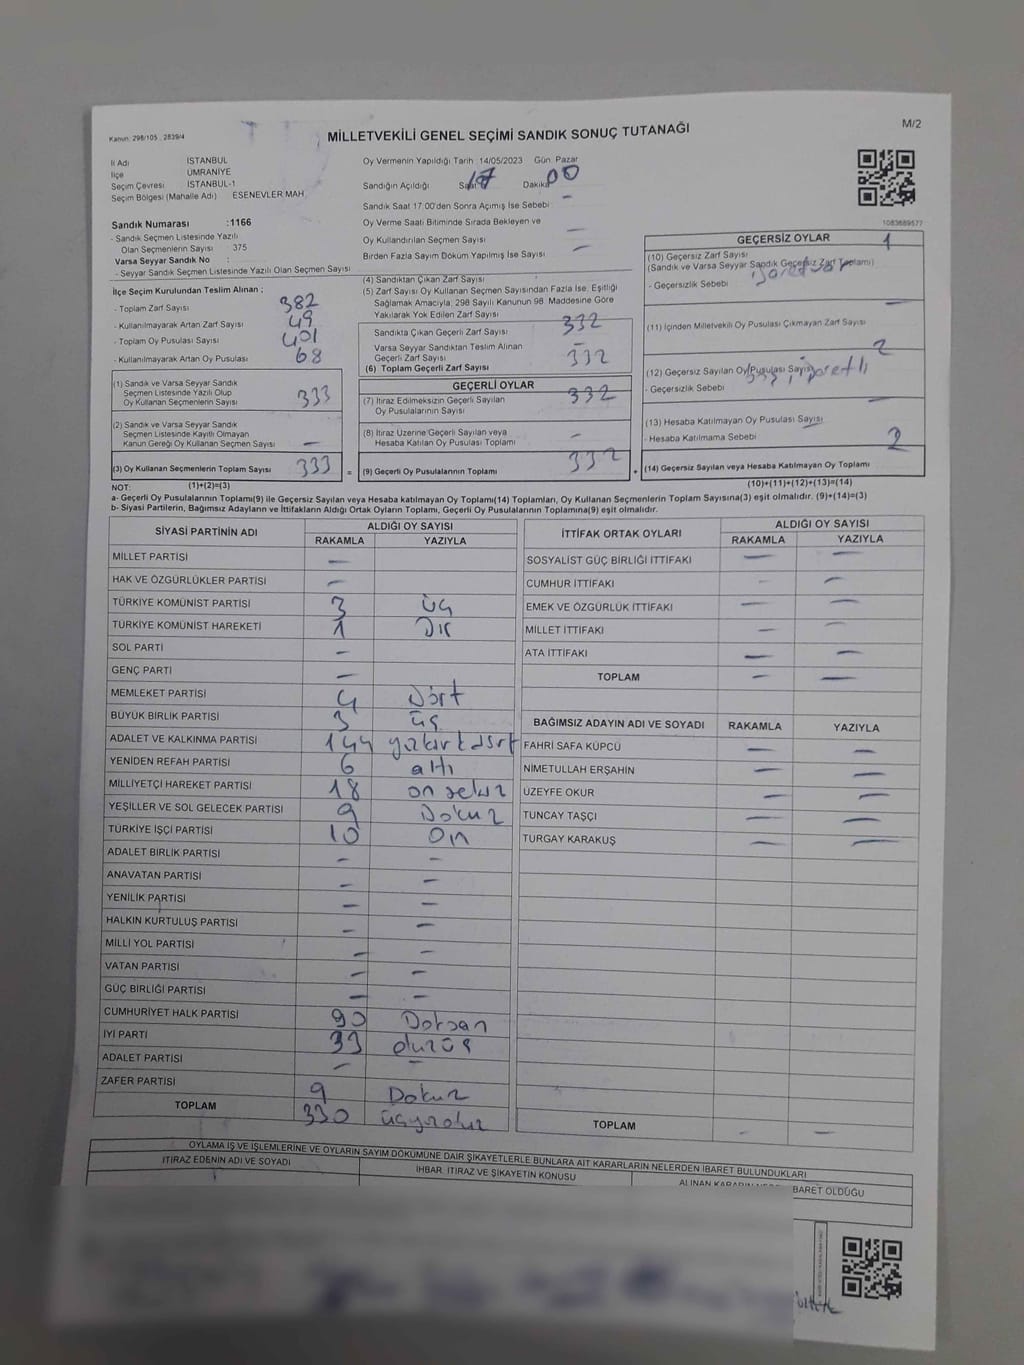 Kanun: 298/105 , 2839/4
MİLLETVEKİLİ GENEL SEÇİMİ SANDIK SONUÇ TUTANAĞI
M/2
İl Adı İSTANBUL
İlçe ÜMRANİYE
Seçim Çevresi İSTANBUL-1
Seçim Bölgesi (Mahalle Adı) ESENEVLER MAH.
Oy Vermenin Yapıldığı Tarih 14/05/2023 Gün Pazar
Sandığın Açıldığı Saat 17 Dakika 00
Sandık Saat 17.00'den Sonra Açımış İse Sebebi -
Oy Verme Saati Bitiminde Sırada Bekleyen ve
Oy Kullandırılan Seçmen Sayısı -
Birden Fazla Sayım Döküm Yapılmış İse Sayısı -
1083689577
Sandık Numarası :1166
- Sandık Seçmen Listesinde Yazılı
Olan Seçmenlerin Sayısı 375
Varsa Seyyar Sandık No :
- Seyyar Sandık Seçmen Listesinde Yazılı Olan Seçmen Sayısı
İlçe Seçim Kurulundan Teslim Alınan ;
- Toplam Zarf Sayısı 382
- Kullanılmayarak Artan Zarf Sayısı 49
- Toplam Oy Pusulası Sayısı 401
- Kullanılmayarak Artan Oy Pusulası 68
(1) Sandık ve Varsa Seyyar Sandık
Seçmen Listesinde Yazılı Olup
Oy Kullanan Seçmenlerin Sayısı 333
(2) Sandık ve Varsa Seyyar Sandık
Seçmen Listesinde Kayıtlı Olmayan
Kanun Gereği Oy Kullanan Seçmen Sayısı -
(3) Oy Kullanan Seçmenlerin Toplam Sayısı 333 =
(4) Sandıktan Çıkan Zarf Sayısı
(5) Zarf Sayısı Oy Kullanan Seçmen Sayısından Fazla İse, Eşitliği
Sağlamak Amacıyla, 298 Sayılı Kanunun 98. Maddesine Göre
Yakılarak Yok Edilen Zarf Sayısı
Sandıkta Çıkan Geçerli Zarf Sayısı 332
Varsa Seyyar Sandıktan Teslim Alınan
Geçerli Zarf Sayısı -
(6) Toplam Geçerli Zarf Sayısı 332
GEÇERLİ OYLAR
(7) İtiraz Edilmeksizin Geçerli Sayılan
Oy Pusulalarının Sayısı 332
(8) İtiraz Üzerine Geçerli Sayılan veya
Hesaba Katılan Oy Pusulası Toplamı -
(9) Geçerli Oy Pusulalarının Toplamı 332 +
GEÇERSİZ OYLAR
(10) Geçersiz Zarf Sayısı 1
(Sandık ve Varsa Seyyar Sandık Geçersiz Zarf Toplamı)
- Geçersizlik Sebebi
(11) İçinden Milletvekili Oy Pusulası Çıkmayan Zarf Sayısı -
(12) Geçersiz Sayılan Oy Pusulası Sayısı 2
- Geçersizlik Sebebi
(13) Hesaba Katılmayan Oy Pusulası Sayısı -
- Hesaba Katılmama Sebebi -
(14) Geçersiz Sayılan veya Hesaba Katılmayan Oy Toplamı
NOT: (1)+(2)=(3)
(10)+(11)+(12)+(13)=(14)
a- Geçerli Oy Pusulalarının Toplamı(9) ile Geçersiz Sayılan veya Hesaba katılmayan Oy Toplamı(14) Toplamları, Oy Kullanan Seçmenlerin Toplam Sayısına(3) eşit olmalıdır. (9)+(14)=(3)
b- Siyasi Partilerin, Bağımsız Adayların ve İttifakların Aldığı Ortak Oyların Toplamı, Geçerli Oy Pusulalarının Toplamına(9) eşit olmalıdır.
SİYASİ PARTİNİN ADI ALDIĞI OY SAYISI
RAKAMLA YAZIYLA
MİLLET PARTİSİ -
HAK VE ÖZGÜRLÜKLER PARTİSİ -
TÜRKİYE KOMÜNİST PARTİSİ 3 üç
TÜRKİYE KOMÜNİST HAREKETİ 1 Bir
SOL PARTİ -
GENÇ PARTİ -
MEMLEKET PARTİSİ 4 Dört
BÜYÜK BİRLİK PARTİSİ 3 üç
ADALET VE KALKINMA PARTİSİ 144 yüzkırkdört
YENİDEN REFAH PARTİSİ 6 altı
MİLLİYETÇİ HAREKET PARTİSİ 18 on sekiz
YEŞİLLER VE SOL GELECEK PARTİSİ 9 Dokuz
TÜRKİYE İŞÇİ PARTİSİ 10 On
ADALET BİRLİK PARTİSİ - -
ANAVATAN PARTİSİ - -
YENİLİK PARTİSİ - -
HALKIN KURTULUŞ PARTİSİ - -
MİLLİ YOL PARTİSİ - -
VATAN PARTİSİ - -
GÜÇ BİRLİĞİ PARTİSİ - -
CUMHURİYET HALK PARTİSİ 90 Doksan
İYİ PARTİ 33 otuzüç
ADALET PARTİSİ - -
ZAFER PARTİSİ 9 Dokuz
TOPLAM 330 üçyüzotuz
İTTİFAK ORTAK OYLARI ALDIĞI OY SAYISI
RAKAMLA YAZIYLA
SOSYALİST GÜÇ BİRLİĞİ İTTİFAKI - -
CUMHUR İTTİFAKI - -
EMEK VE ÖZGÜRLÜK İTTİFAKI - -
MİLLET İTTİFAKI - -
ATA İTTİFAKI - -
TOPLAM - -
BAĞIMSIZ ADAYIN ADI VE SOYADI RAKAMLA YAZIYLA
FAHRİ SAFA KÜPCÜ - -
NİMETULLAH ERŞAHİN - -
ÜZEYFE OKUR - -
TUNCAY TAŞÇI - -
TURGAY KARAKUŞ - -
TOPLAM - -
OYLAMA İŞ VE İŞLEMLERİNE VE OYLARIN SAYIM DÖKÜMÜNE DAİR ŞİKAYETLERLE BUNLARA AİT KARARLARIN NELERDEN İBARET BULUNDUKLARI
İTİRAZ EDENİN ADI VE SOYADI
İHBAR, İTİRAZ VE ŞİKAYETİN KONUSU
BARET OLDUĞU